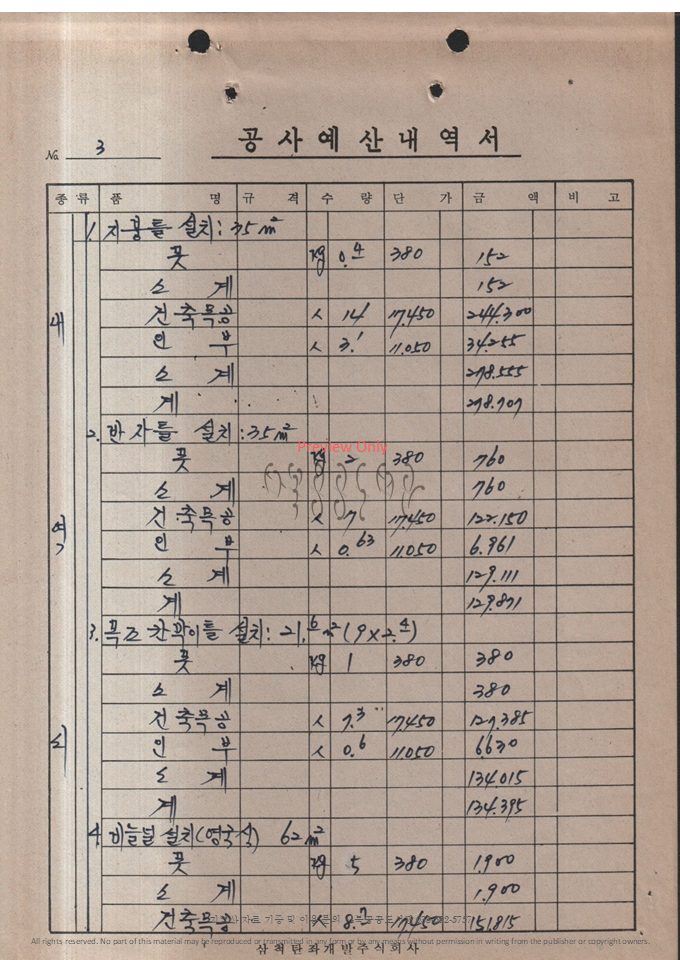 공사예산내역서
No. 3
종류 품명 규격 수량 단가 금액 비고
내역
1. 지붕틀 설치: 35㎡
못 kg 0.4 380 152
소계 152
건축목공 人 14 17,450 244.300
인부 人 3.1 11.050 34.255
소계 278.555
계 278.707
2. 반자틀 설치: 35㎡
Preview Only
못 kg 2 380 760
소계 760
건축목공 人 7 17.450 122.150
인부 人 0.63 11.050 6.961
소계 129.111
계 129.871
3. 목조칸막이틀 설치: 21.6㎡(9×2.4)
못 kg 1 380 380
소계 380
건축목공 人 7.3 17,450 127,385
인부 人 0.6 11.050 6.630
소계 134.015
계 134.395
4. 비늘널 설치(영국식) 62㎡
못 kg 5 380 1.900
소계 1.900
건축목공 人 8.7 17,450 151,815
All rights reserved. No part of this material may be reproduced or transmitted in any form or by any means without permission in writing from the publisher or copyright owners.
삼척탄좌개발주식회사